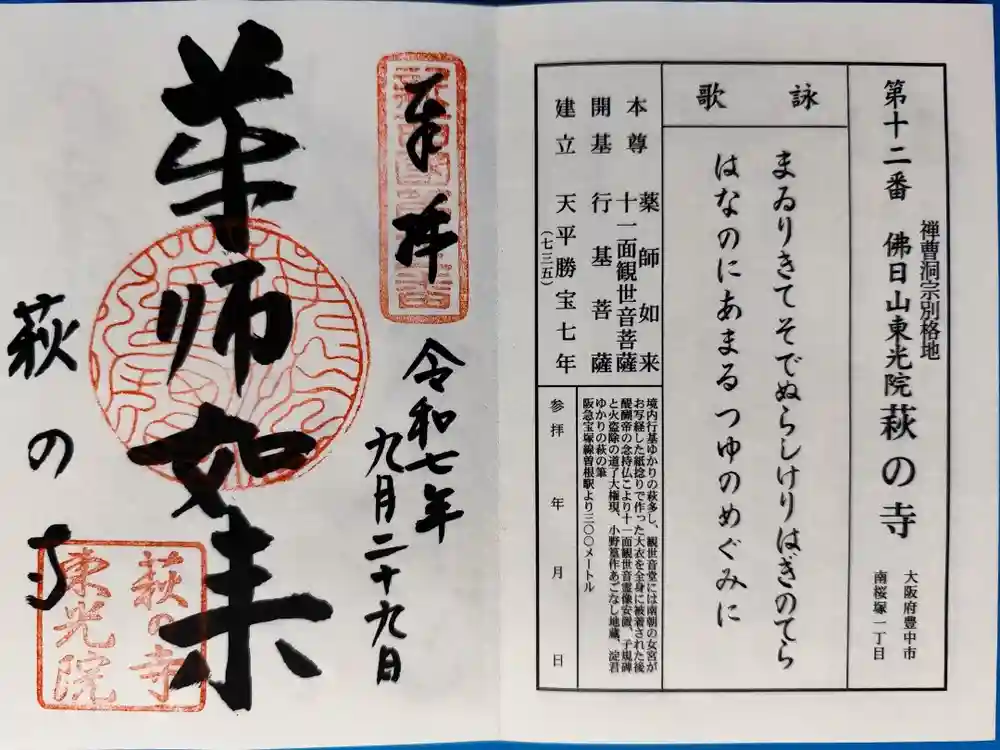 第十二番 佛日山東光院 萩の寺
禅曹洞宗別格地
大阪府豊中市
南桜塚一丁目
詠歌
まゐりきてそでぬらしけりはぎのてら
はなのにあまるつゆのめぐみに
本尊 薬師如来
十一面観世音菩薩
開基 行基菩薩
建立 天平勝宝七年
(七三五)
境内行基ゆかりの萩多し、観世音堂には南朝の女宮が
お写経した紙捻りで作った大衣を全身に被着された後
醍醐帝の念持仏こより十一面観世音霊像安置、子規碑
と火盗除の道了大権現、小野篁作あごなし地蔵、淀君
ゆかりの萩の筆
阪急宝塚線曽根駅より三〇〇メートル
参拝 年 月 日
奉拝
令和七年
九月二十九日
薬師如来
萩の寺
萩の寺
東光院